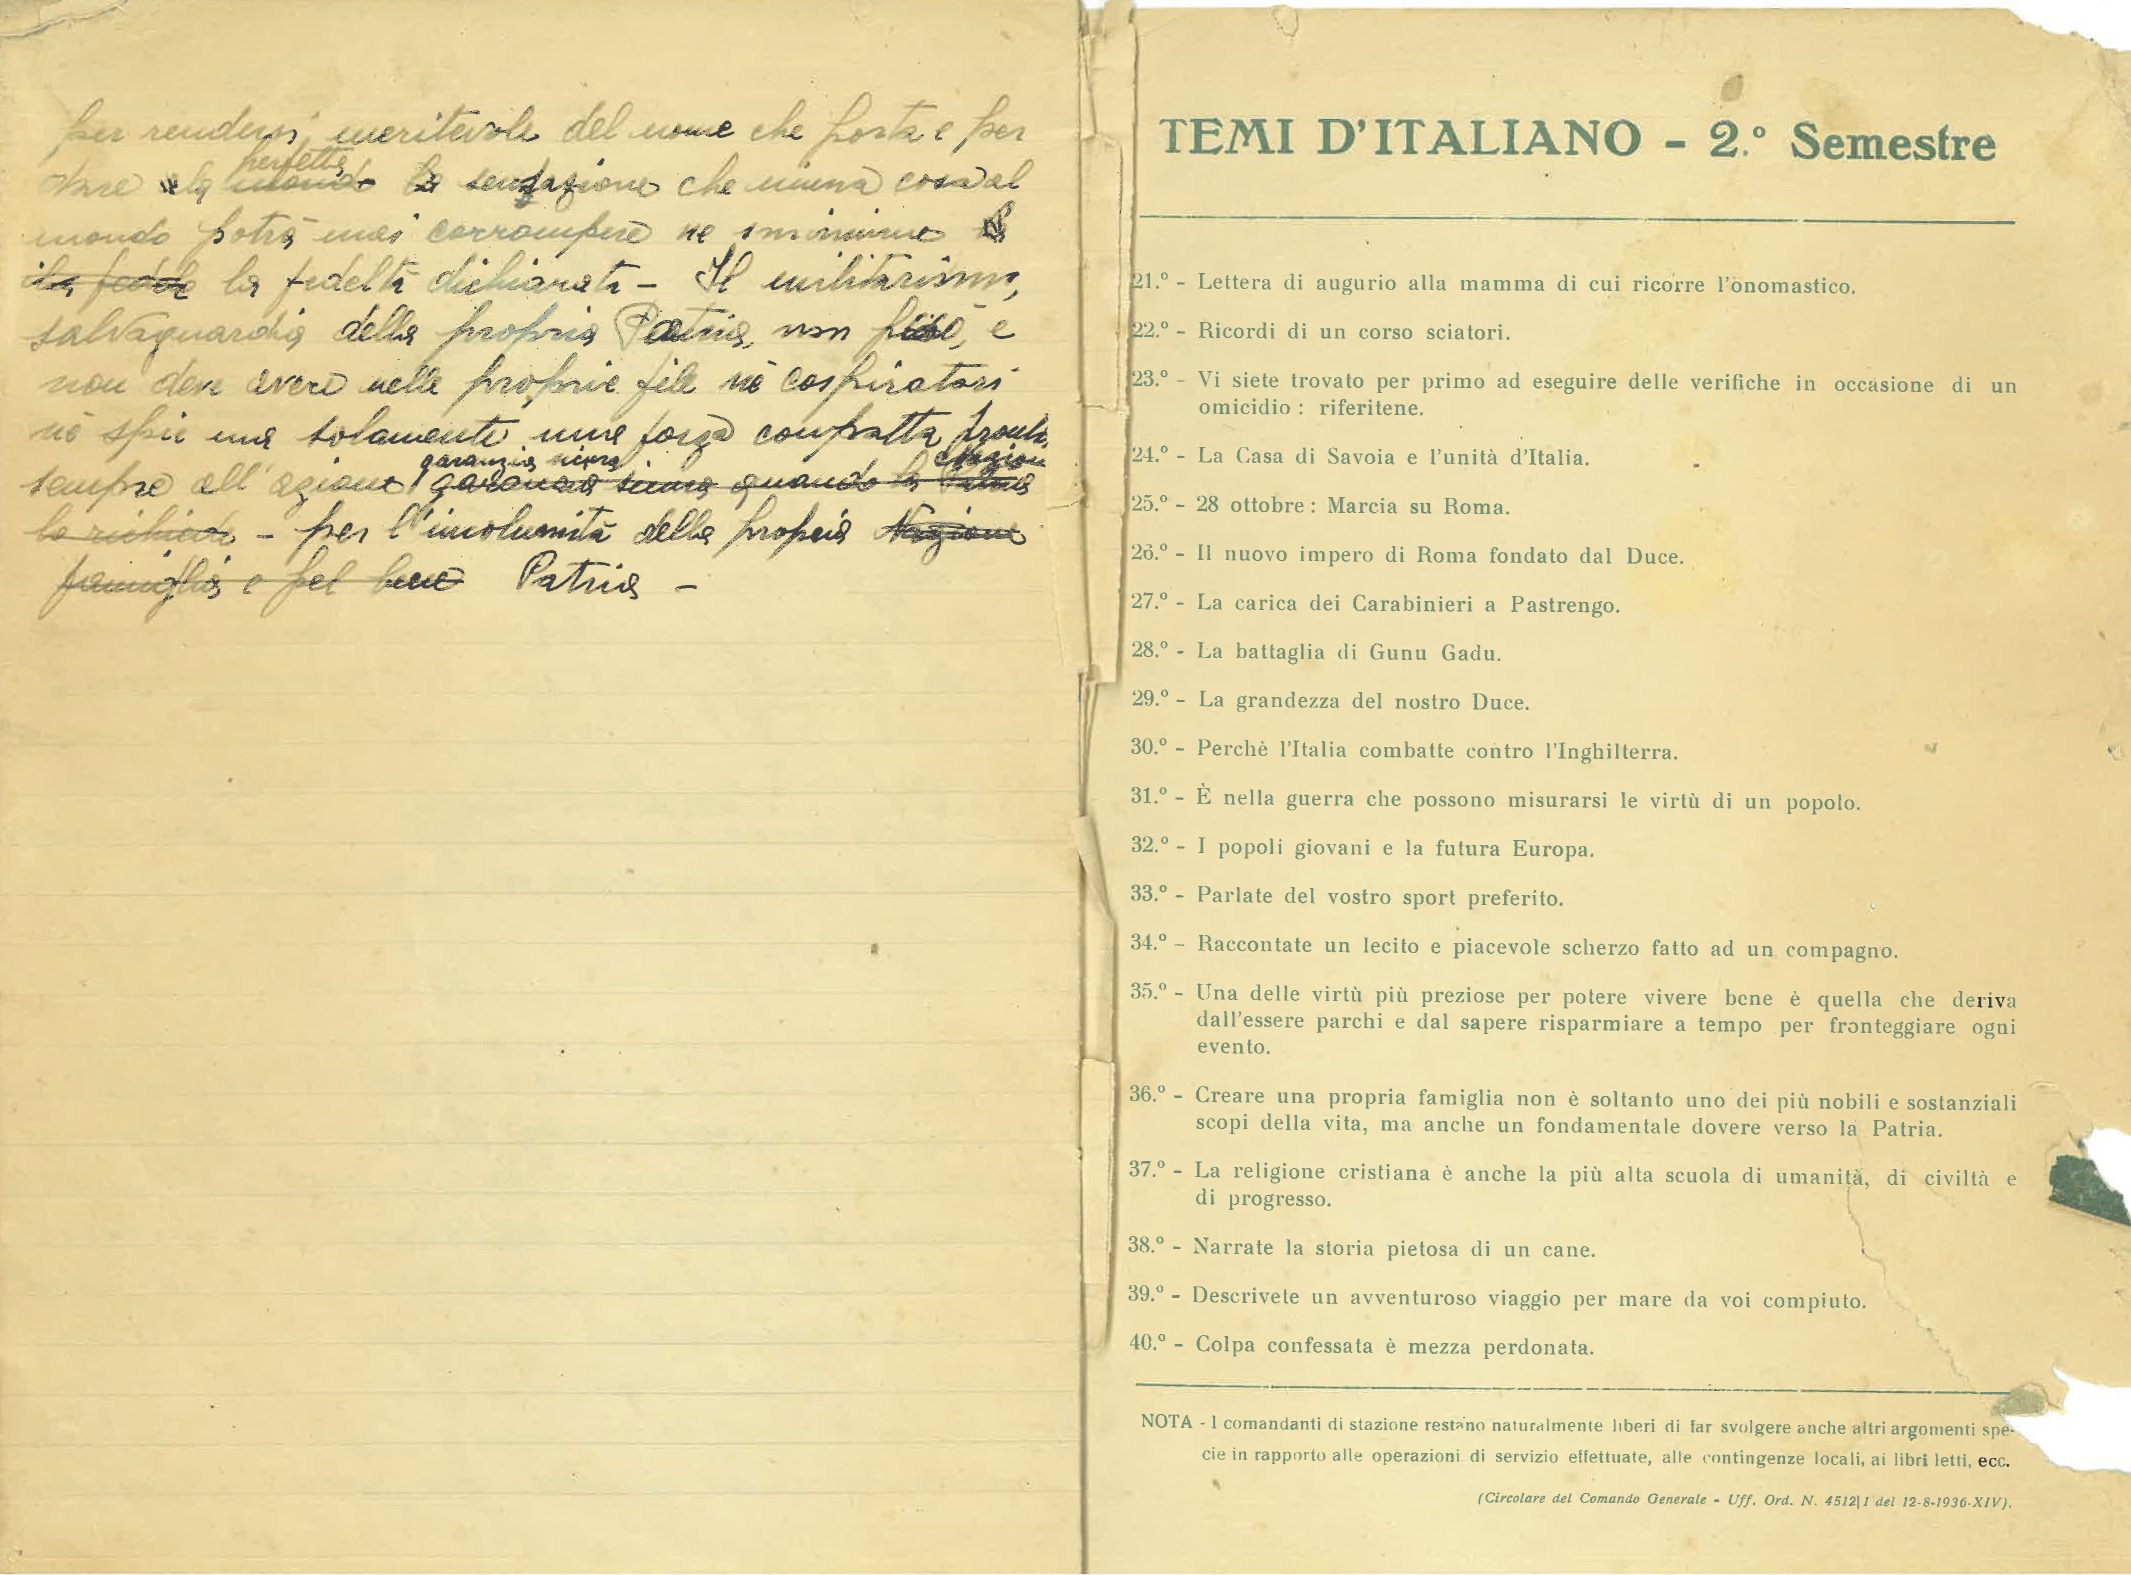 per rendersi meritevole del nome che porta e per
dare la perfetta sensazione che niuna cosa al
mondo potrà mai corrompere ne
la fedeltà dichiarata - Il militarismo,
salvaguardia della propria Patria, non può, e
non deve avere nelle proprie file nè cospiratori
nè spie ma solamente una forza compatta pronta
garanzia sicura Nazione
sempre all'azione quando la Patria
lo richiede - per l'incolumità della propria Nazione
famiglia e pel bene Patria -
TEMI D'ITALIANO - 2.° Semestre
21.° - Lettera di augurio alla mamma di cui ricorre l'onomastico.
22.° - Ricordi di un corso sciatori.
23.° - Vi siete trovato per primo ad eseguire delle verifiche in occasione di un
omicidio : riferitene.
24.° - La Casa di Savoia e l'unità d'Italia.
25.° - 28 ottobre : Marcia su Roma.
26.° - Il nuovo impero di Roma fondato dal Duce.
27.° - La carica dei Carabinieri a Pastrengo.
28.° - La battaglia di Gunu Gadu.
29.° - La grandezza del nostro Duce.
30.° - Perchè l'Italia combatte contro l'Inghilterra.
31.° - È nella guerra che possono misurarsi le virtù di un popolo.
32.° - I popoli giovani e la futura Europa.
33.° - Parlate del vostro sport preferito.
34.° - Raccontate un lecito e piacevole scherzo fatto ad un compagno.
35.° - Una delle virtù più preziose per potere vivere bene è quella che deriva
dall'essere parchi e dal sapere risparmiare a tempo per fronteggiare ogni
evento.
36.° - Creare una propria famiglia non è soltanto uno dei più nobili e sostanziali
scopi della vita, ma anche un fondamentale dovere verso la Patria.
37.° - La religione cristiana è anche la più alta scuola di umanità, di civiltà e
di progresso.
38.° - Narrate la storia pietosa di un cane.
39.° - Descrivete un avventuroso viaggio per mare da voi compiuto.
40.° - Colpa confessata è mezza perdonata.
NOTA - I comandanti di stazione restano naturalmente liberi di far svolgere anche altri argomenti spe-
cie in rapporto alle operazioni di servizio effettuate, alle contingenze locali, ai libri letti, ecc.
(Circolare del Comando Generale - Uff. Ord. N. 4512|1 del 12-8-1936-XIV).